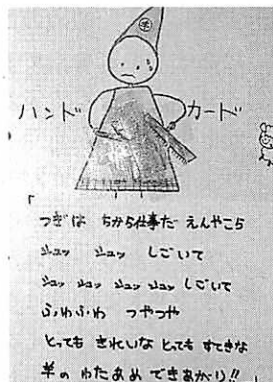 羊
ハンド カード
「
つぎは ちから仕事だ えんやこら
シュッ シュッ しごいて
シュッ シュッ シュッ シュッ しごいて
ふわふわ つやつや
とっても きれいな とっても すてきな
羊の わたあめ できあがり!!